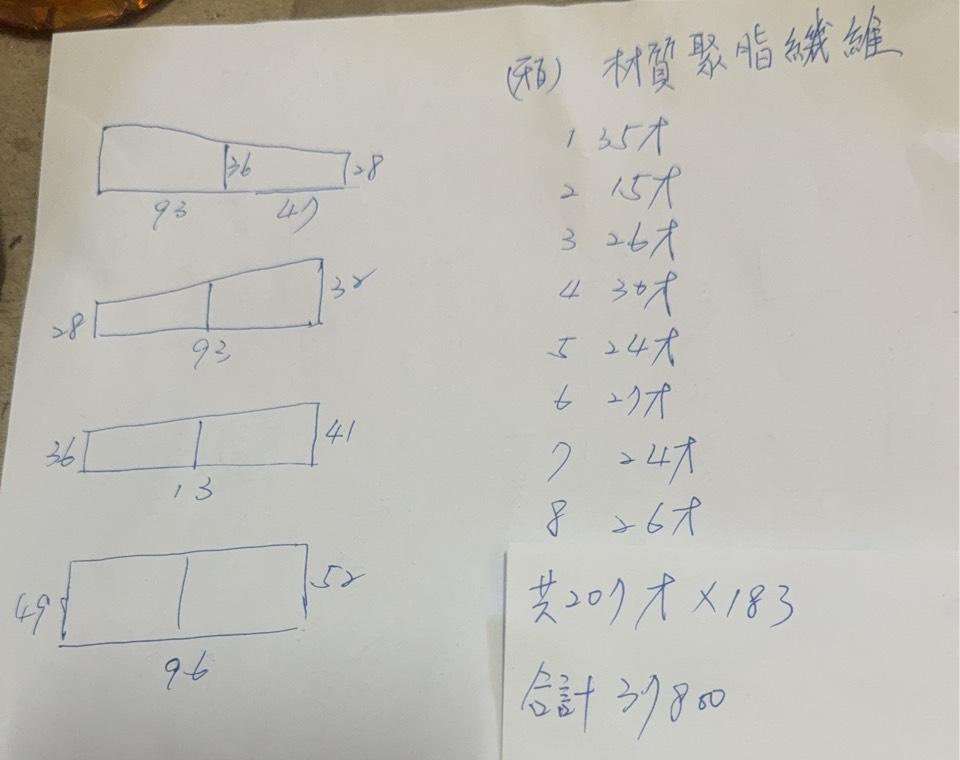 材質聚脂纖維
36
28
93
47
1 35才
2 15才
3 26才
4 30才
5 24才
6 27才
7 24才
8 26才
28
32
93
36
41
13
49
52
96
共207才×183
合計37800